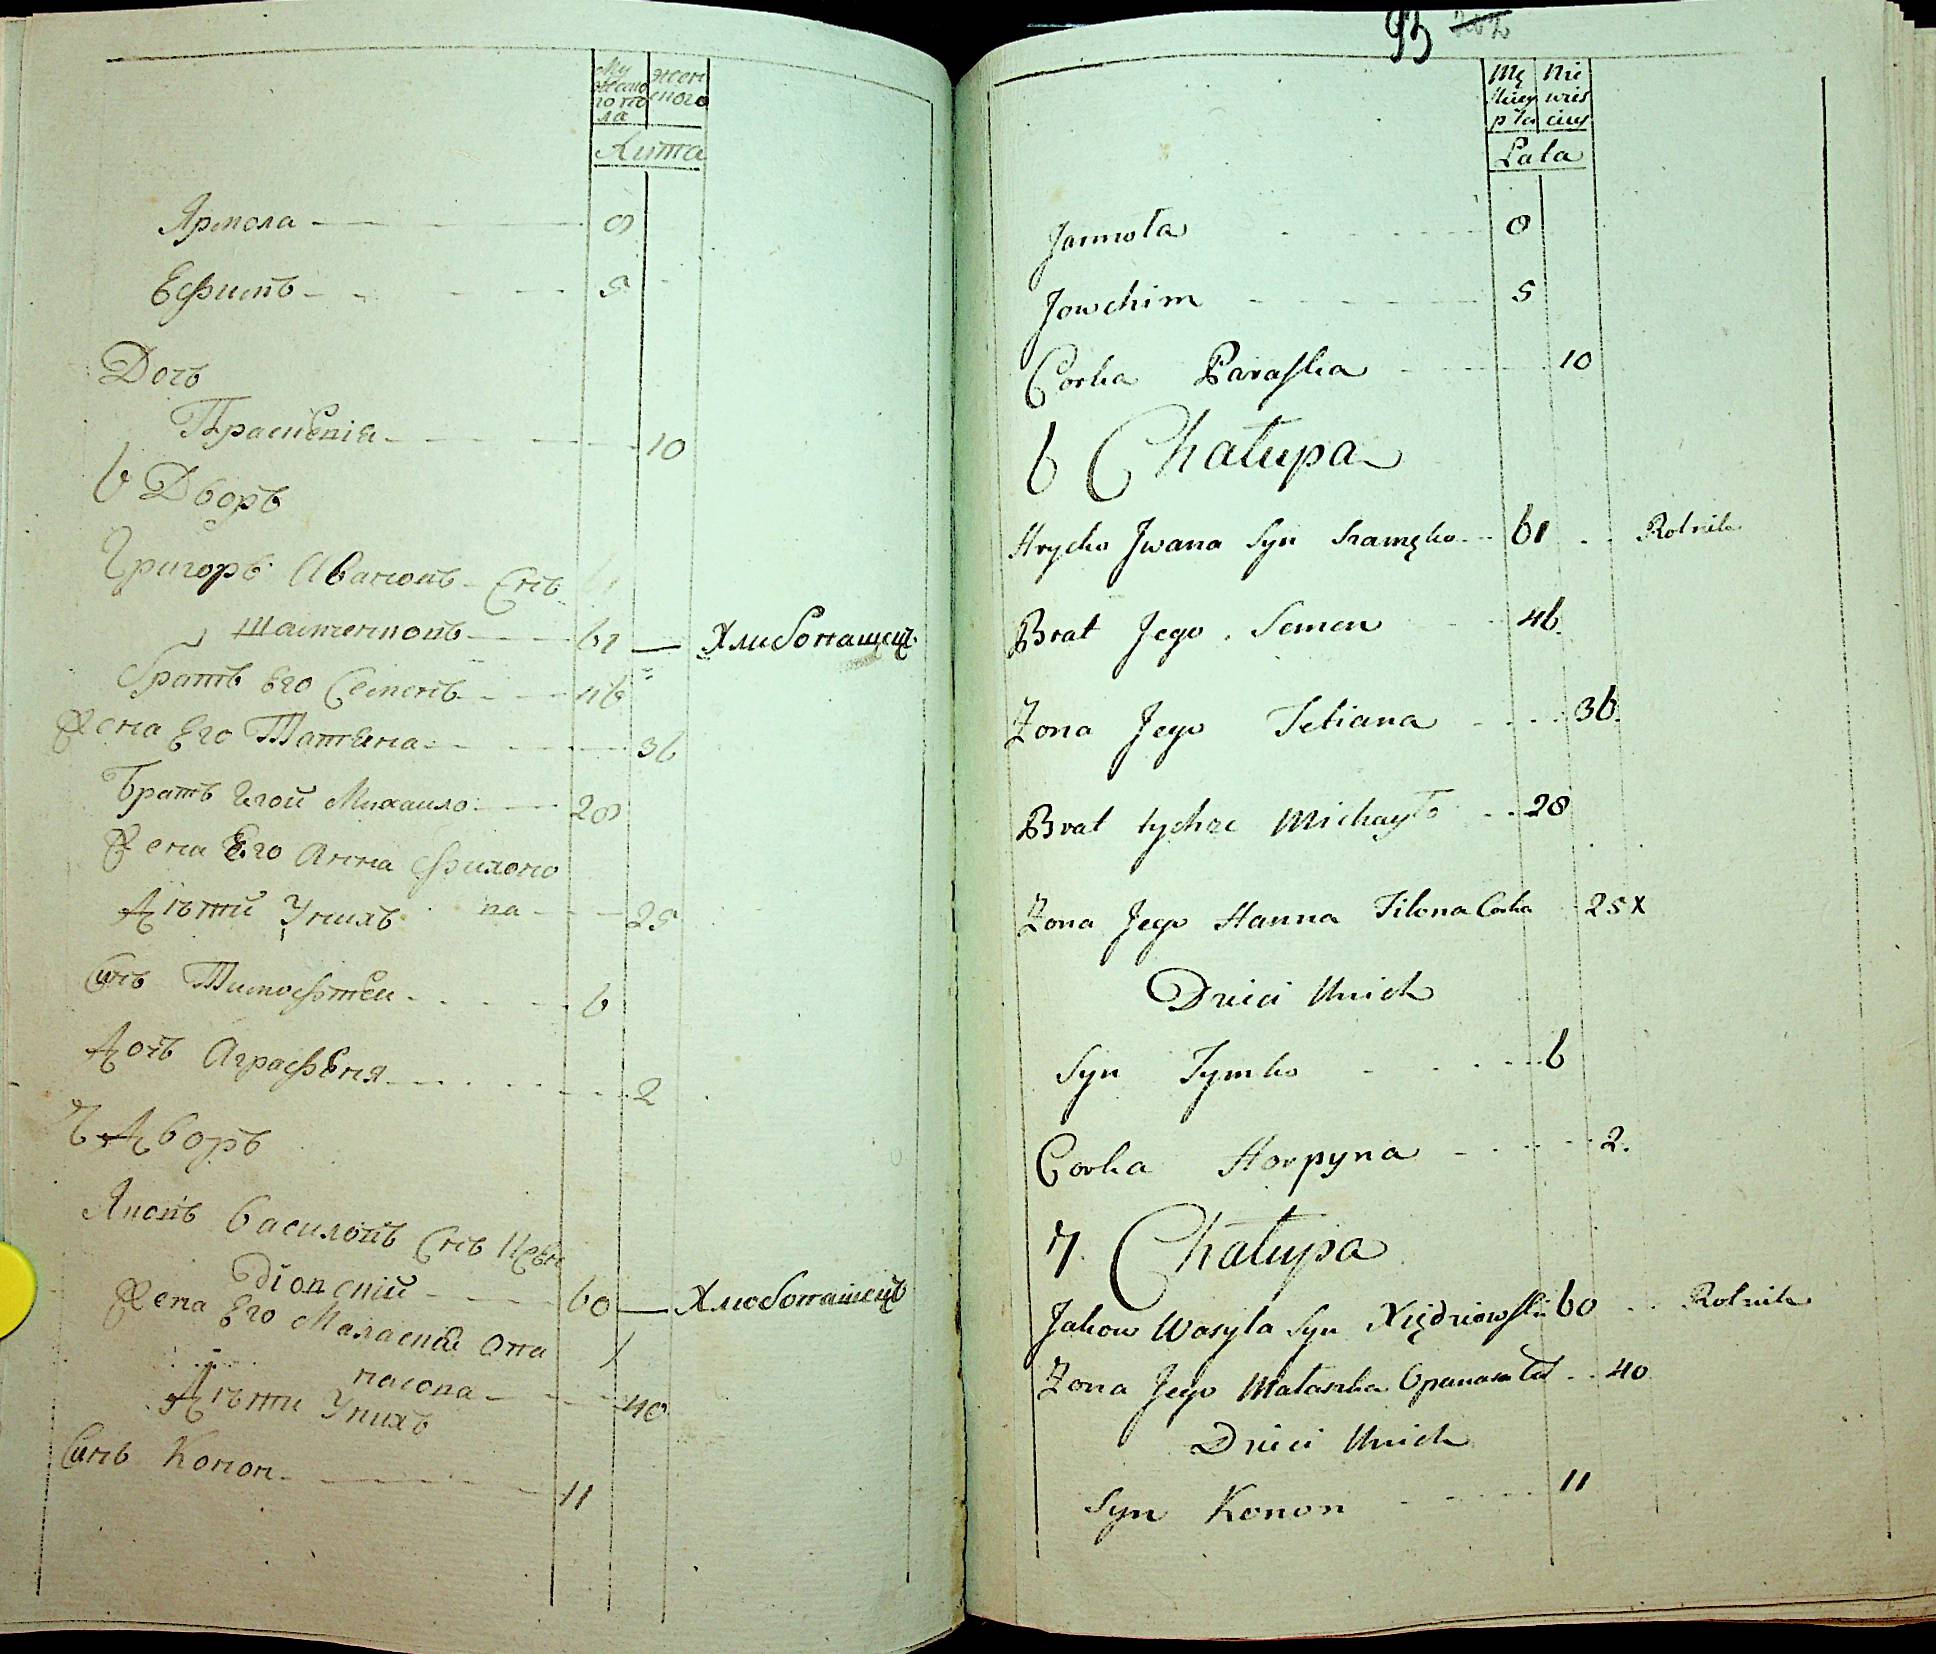 Му жеско го по ла
женского
Лита
Ярмола 8
Ефимъ 5
Дочъ
Прасценiя 10
6 Дворъ
Григоръ Авановъ Снъ
Шаменковъ 61 Хлибопащецъ
братъ Его Семенъ 46
Жена Его Татіяна 36
Братъ Ихой Михаило 28
Жена Его Анна Филоно
ва 25
Дѣти Унихъ
Синъ Тимофтеи 6
Дочъ Аграфѣня 2
7 Дворъ
Яковъ Василовъ Снъ
60 Хлюбопашецъ
Жена Его Маласка Опа
насова 40
Дѣти Унихъ
Синъ Конон 11
93 202
Mę skiey płci
Nie wieś ciey
Lata
Jarmoła 8
Jowchim 5
Corka Paraska 10
6 Chałupa
Hrycko Jwana Syn Szamęko 61 Rolnik
Brat Jego Semen 46
Zona Jego Tetiana 36
Brat tychze Michayło 28
Zona Jego Hanna Filona Corka 25 x
Dzieci Unich
Syn Tymko 6
Corka Horpyna 2
7. Chałupa
Jakow Wasyla Syn Xiędziowski 60 Rolnik
Zona Jego Małaszka Opanasa Cor 40
Dzieci Unich
Syn Konon 11